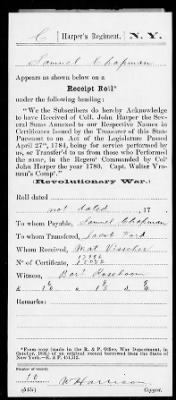 C | Harper's Regiment. | N. Y.
Samuel Chapman
Appears as shown below on a
Receipt Roll*
under the following heading:
"We the Subscribers do hereby Acknowledge
to have Received of Coll. John Harper the Sev-
eral Sums Annexed to our Respective Names in
Certificates Issued by the Treasurer of this State
Pursuant to an Act of the Legislature Passed
April 27th, 1784, being for service performed by
us, or Transfer'd to us from those who Performed
the same, in the Regem' Commanded by Col'
John Harper the year 1780. Capt. Walter Vro-
man's Comp'."
(Revolutionary War.)
Roll dated
not dated, 17 .
To whom Payable, Samuel Chapman
To whom Transferred, Jacob Ford
Whom Received, Mat Visscher
N° of Certificate,
Witness, Bar' Roseboom
Remarks:
*From copy made in the R. & P. Office, War Department, in
of an original record borrowed from the State of
New York.—R. & P.
Number of record:
20
W Harrison
Copyist.